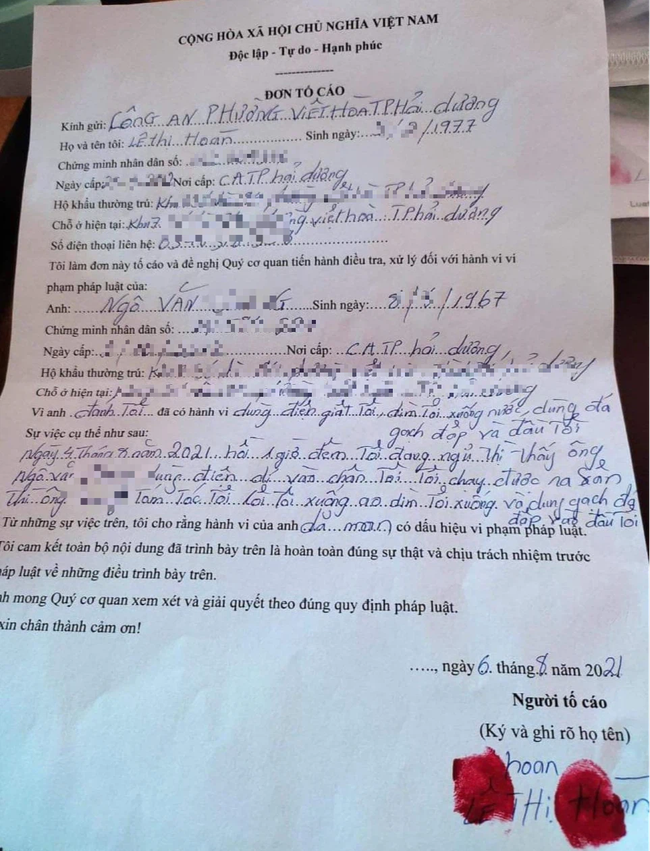 CỘNG HÒA XÃ HỘI CHỦ NGHĨA VIỆT NAM
Độc lập - Tự do - Hạnh phúc
ĐƠN TỐ CÁO
Kính gửi: CÔNG AN PHƯỜNG VIỆT HOÀ T.P Hải dương
Họ và tên tôi: LÊ thi Hoan Sinh ngày: /1977
Chứng minh nhân dân số:
Ngày cấp: Nơi cấp: C.A.T.P hải dương
Hộ khẩu thường trú: Khu
Chỗ ở hiện tại: Khu 7 việt hoà T.P hải dương
Số điện thoại liên hệ: 03
Tôi làm đơn này tố cáo và đề nghị Quý cơ quan tiến hành điều tra, xử lý đối với hành vi vi
phạm pháp luật của:
Anh: NGÔ VĂN Sinh ngày: /1967
Chứng minh nhân dân số:
Ngày cấp: Nơi cấp: C.A.T.P hải dương
Hộ khẩu thường trú:
Chỗ ở hiện tại:
Vì anh đánh Tôi đã có hành vi dùng điện giật Tôi, dìm Tôi xuống nước, dung đá
gạch đập và đầu Tôi
Sự việc cụ thể như sau:
Ngày 4 tháng 8 năm 2021 hồi 1 giờ đêm Tôi đang ngủ thi thấy ông
Ngô vă điên di vàn chân Tôi Tôi chạy được ra sân
Thi ông Tôi xuống ao dìm Tôi xuống và dung gạch đá
đập vào đầu Tôi
Từ những sự việc trên, tôi cho rằng hành vi của anh dã man có dấu hiệu vi phạm pháp luật.
Tôi cam kết toàn bộ nội dung đã trình bày trên là hoàn toàn đúng sự thật và chịu trách nhiệm trước
háp luật về những điều trình bày trên.
nh mong Quý cơ quan xem xét và giải quyết theo đúng quy định pháp luật.
xin chân thành cảm ơn!
....., ngày 6 tháng 8 năm 2021
Người tố cáo
(Ký và ghi rõ họ tên)
hoan
LÊ THị Hoan